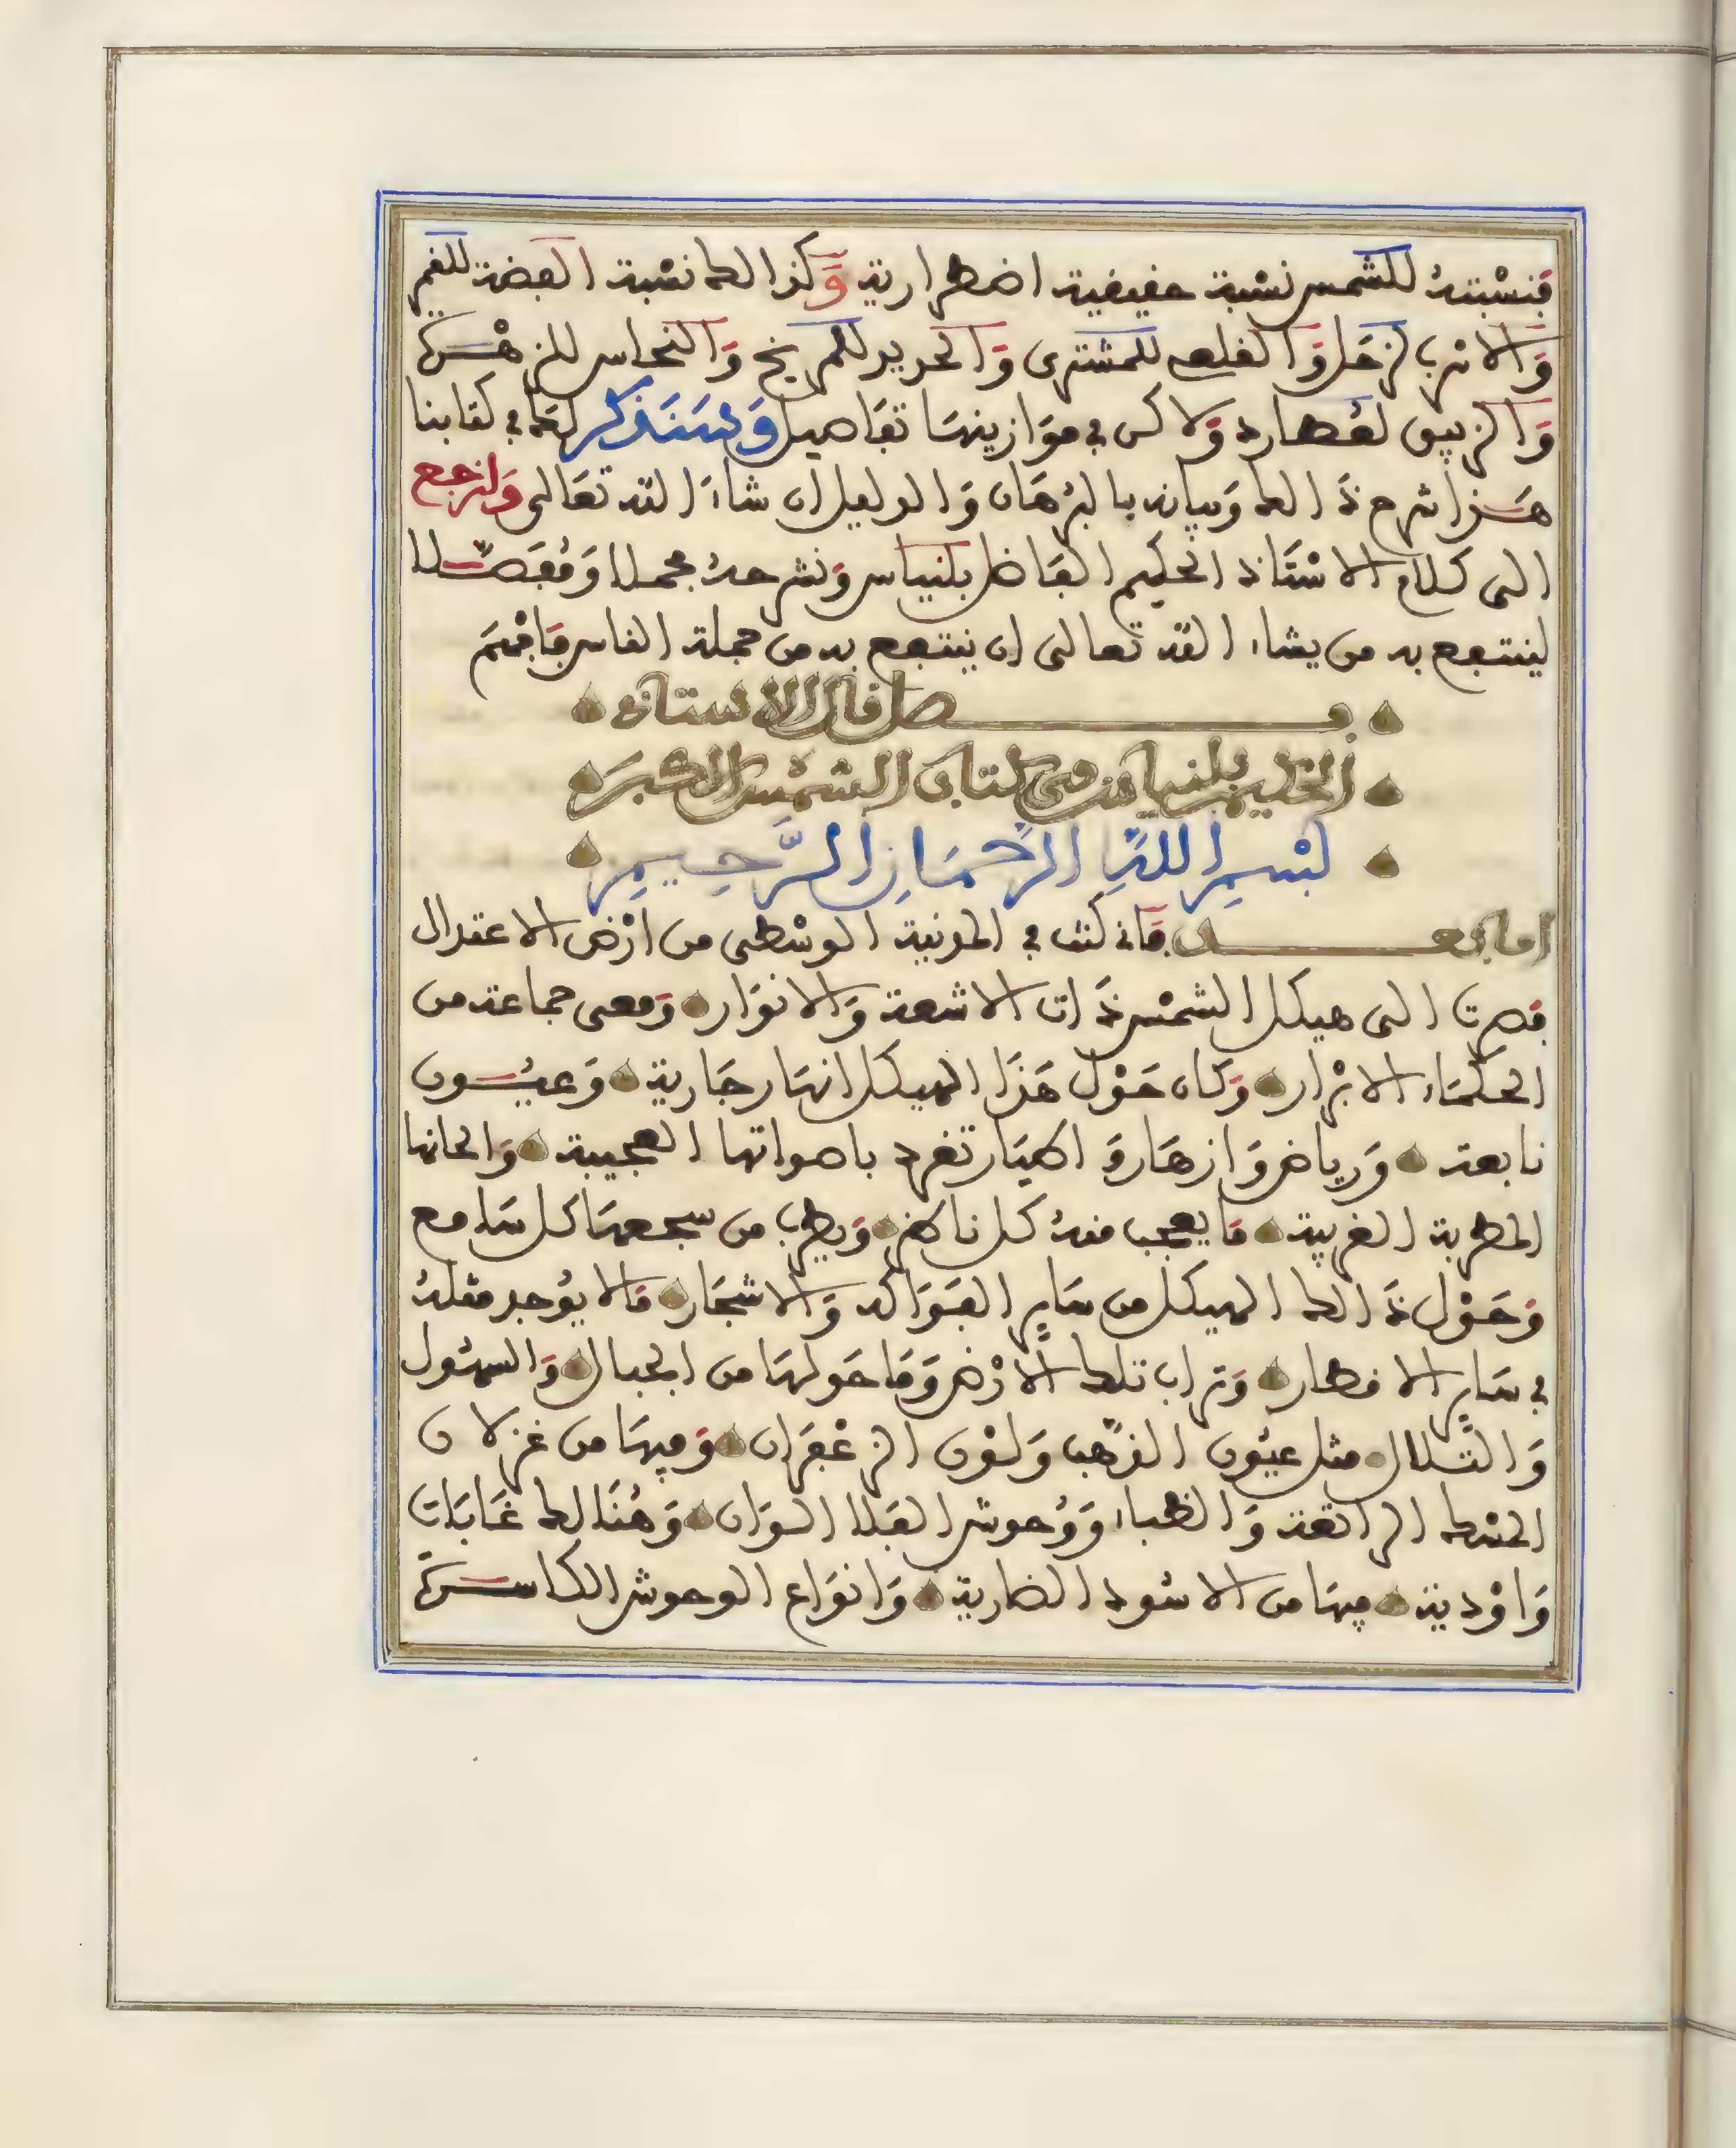 فنسْبته للشمس نسْبة حقيقية اضطرارية وَكذالك نسْبة الفضة للقمر
وَالاسرب لزحَل وَالقلعي للمشتري وَالحديد للمريخ وَالنحاس للزهْــرة
وَالزيبق لعُطارد وَلاكن في موَازينهَا تفَاصيل وَسَنَذكر لهَا في كتابنا
هَــذا شرح ذَالك وَبيانه بالبرْهَان وَالدليل ان شاءَ الله تعَالى وَلنرجع
الى كلام الاسْتَاذ الحكيم الفَاضل بلنياس وَنشرحهُ مجملا وَمُفَصّــلا
لينتفع به من يشاء الله تعالى ان ينتفع به من جملة الناس فَافْهَم
فــصل قال الاستاذ
الحكيم بلنياس في كتاب الشمْس الاكبَر
بسْمِ اللهِ الرَّحْمَانِ الرَّحِيمِ
اما بعــد فَاني كنت في المدينة الوسْطى من ارْض الاعتدال
فصرت الى هيكل الشمْس ذَات الاشعة وَالانوَار وَمعى جماعة من
الحكَمَاء الابْرار وَكان حَوْل هَذَا الهيكل انهَار جَارية وَعيُــون
نابعة وَرياض وَازهَار وَاطيَار تغرد باصواتها العجيبة وَالحانها
المطربة الغريبة مَا يعجب منهُ كل ناظر وَيطرب من سجعهَا كل سَامع
وَحَوْل ذَالك الهيكل من سَاير الفَوَاكه وَالاشجَار مَا لا يوُجد مثلهُ
في سَاير الاقطار وَتراب تلك الاَرْض وَمَا حَولهَا من الجبال وَالسهُول
وَالتّلال مثل عيُون الذّهب وَلوْن الزعْفرَان وَفيهَا من غزلان
المسْك الراتعة وَالظباء وَوُحوش الفَلا السوَان وَهُنَالك غَابَات
وَاوْدية فيهَا من الاسُود الضارية وَانوَاع الوحوش الكاســرَة